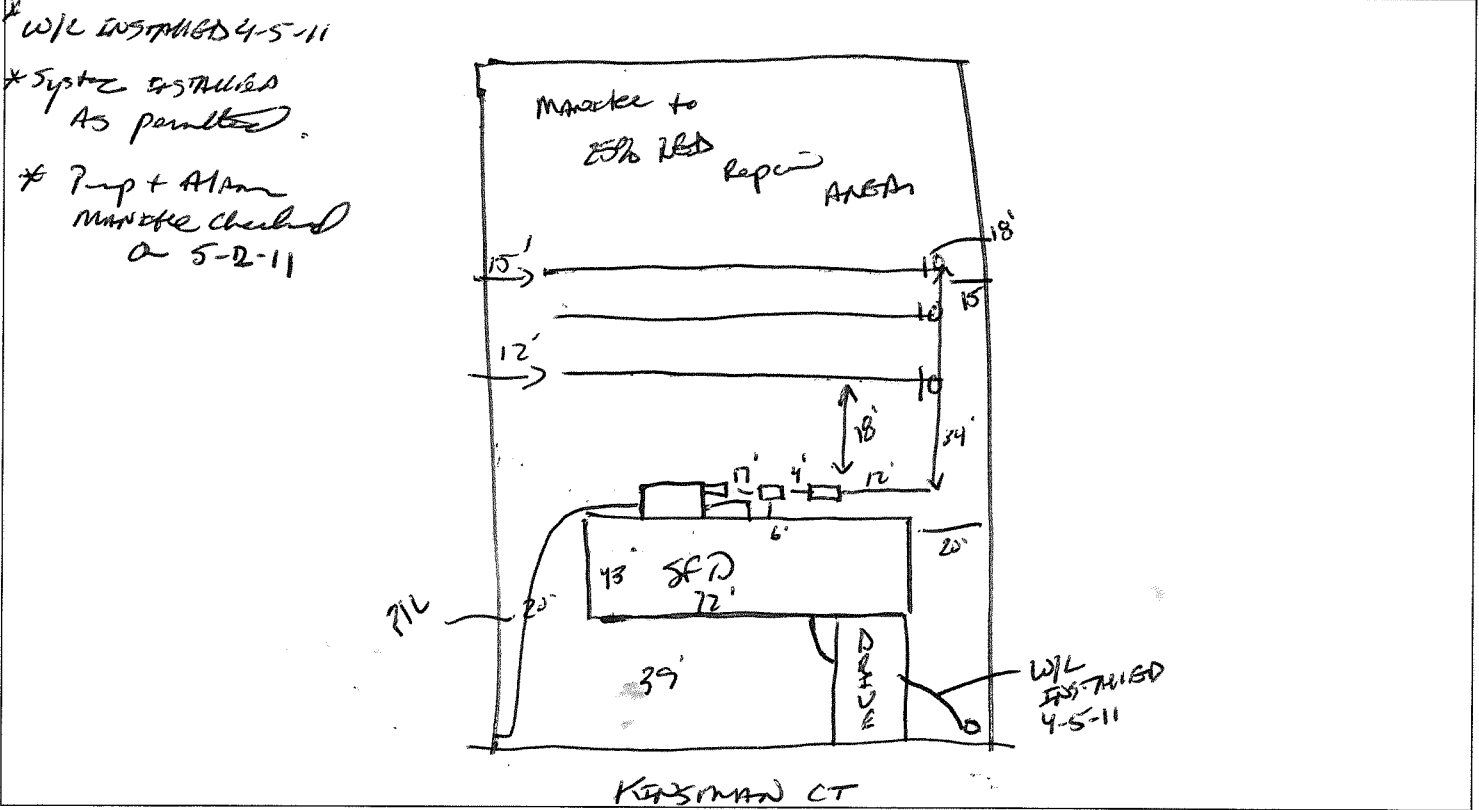 * W/L INSTALLED 4-5-11
* System INSTALLED
As permitted.
* Pump + Alarm
MANIFOLD checked
on 5-2-11
to
25% RED
Repair
AREA
15'
18'
15
10
12'
10
18'
34'
17'
4'
12'
6'
20'
43'
SFD
72'
P/L
20'
39'
DRIVE
W/L
INSTALLED
4-5-11
KINSMAN CT